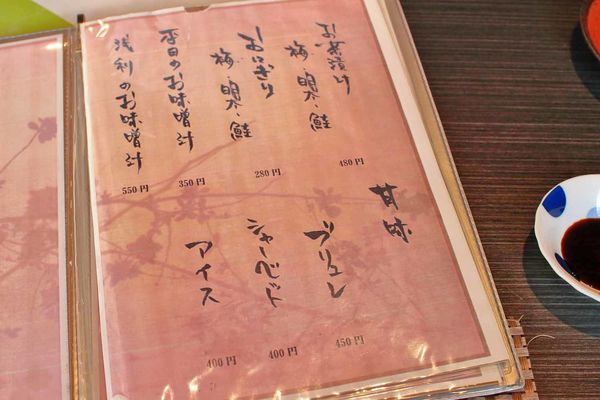 お茶漬け
梅・明太・鮭
480円
おにぎり
梅・明太・鮭
280円
本日のお味噌汁
350円
浅利のお味噌汁
550円
甘味
ブリュレ
450円
シャーベット
400円
アイス
400円